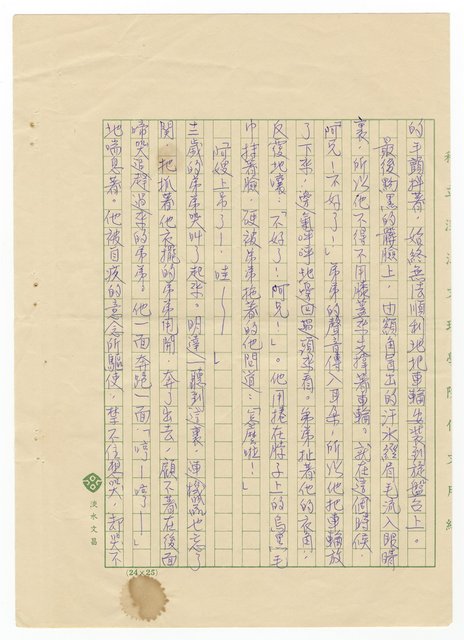 私立淡江文理學院作文用紙
的手顫抖著，始終無法順利地把車輪安裝到旋盤台上。
最後黝黑的臉上，由額角冒出的汗水經眉毛流入眼睛
裏，所以他不得不用膝蓋來支撐著車輪。就在這個時候，
「阿兄！不好了！」弟弟的聲音傳入耳朵，所以他把車輪放
了下來，邊氣呼呼地邊回過頭來看。弟弟扯著他的衣角，
反覆地嚷：「不好了！阿兄！」。他用捲在脖子上的烏黑毛
巾抹著臉，硬被弟弟拖著的他問道：「怎麼啦！」
「阿嫂上吊了！哇──」
十三歲的弟弟哭叫了起來。明達一聽到這裏，連機器也忘了
關，把抓著他衣擺的弟弟甩開，奔了出去，顧不著在後面
啼哭追趕過來的弟弟。他一面奔跑一面「哼！哼！」
地喘息著。他被自疚的意念所驅使，禁不住想哭，却哭不
淡水文昌
(24×25)